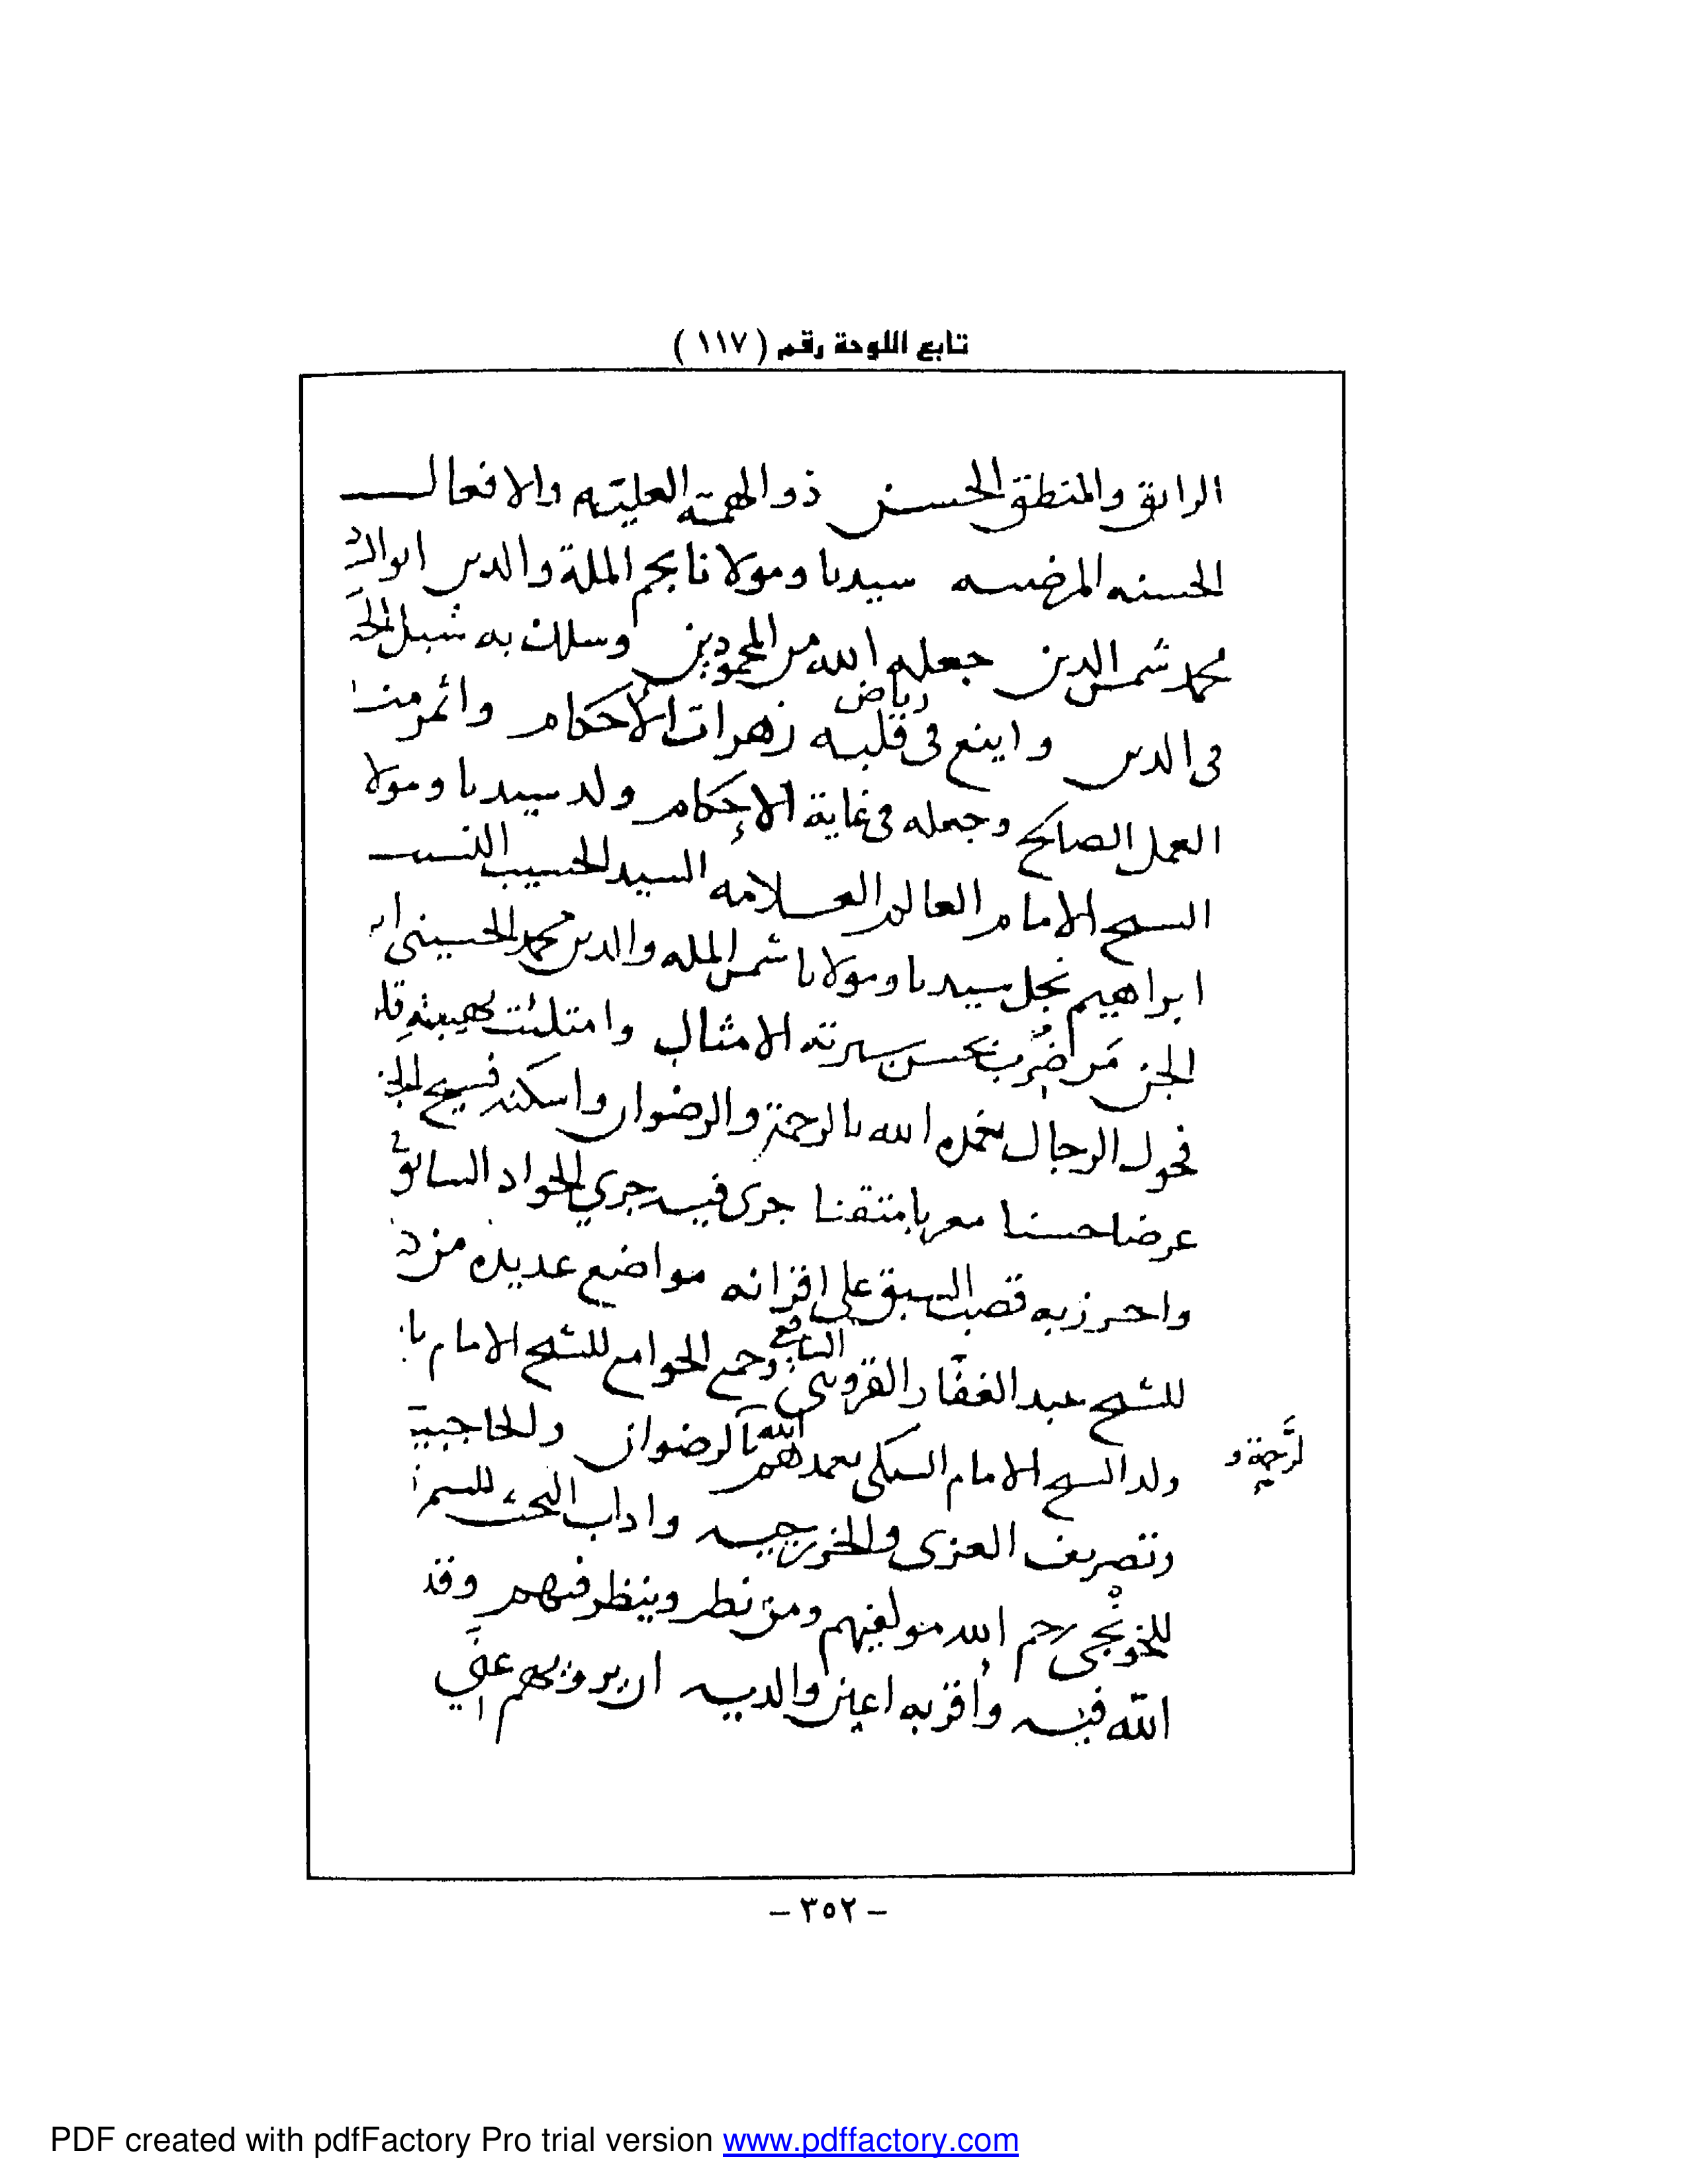 تابع اللوحة رقم (١١٧)
الرايق والمنطق الحسن ذو الهمة العلية والافعال
الحسنه المرضيه سيدنا ومولانا نجم الملة والدين ابو
محمد شمس الدين جعله الله من المحمودين وسلك به سبل
فى الدين واينع فى رياض قلبه زهرات الأحكام واثمر
العمل الصالح وجعله فى غاية الإحكام ولد سيدنا ومولا
الشيخ الامام العالم العلامه السيد الحسيب النسيب
ابراهيم نجل سيدنا ومولانا شمس المله والدين محمد الحسينى
الجن من ضرب بحسن سيرته الامثال وامتلئت بهيبته
فحول الرجال تغمده الله بالرحمة والرضوان واسكنه فسيح
عرضا حسنا معربا متقنا جرى فيه جري الجواد السابق
واحرز به قصب السبق على اقرانه مواضع عديده من
للشيخ عبد الغفار القزوينى الشافعى وجمع الجوامع للشيخ الامام
ولد الشيخ الامام السبكى تغمدهم الله بالرضوان والحاجبية
لرحمة و
وتصريف العزى والخزرجيه واداب البحث
للخونجى رحم الله مولفيهم ومن نظر وينظر فيهم وقد
الله فيه وأقر به اعين والديه ان يروي بهم عنى
- ٣٥٢ -
PDF created with pdfFactory Pro trial version www.pdffactory.com